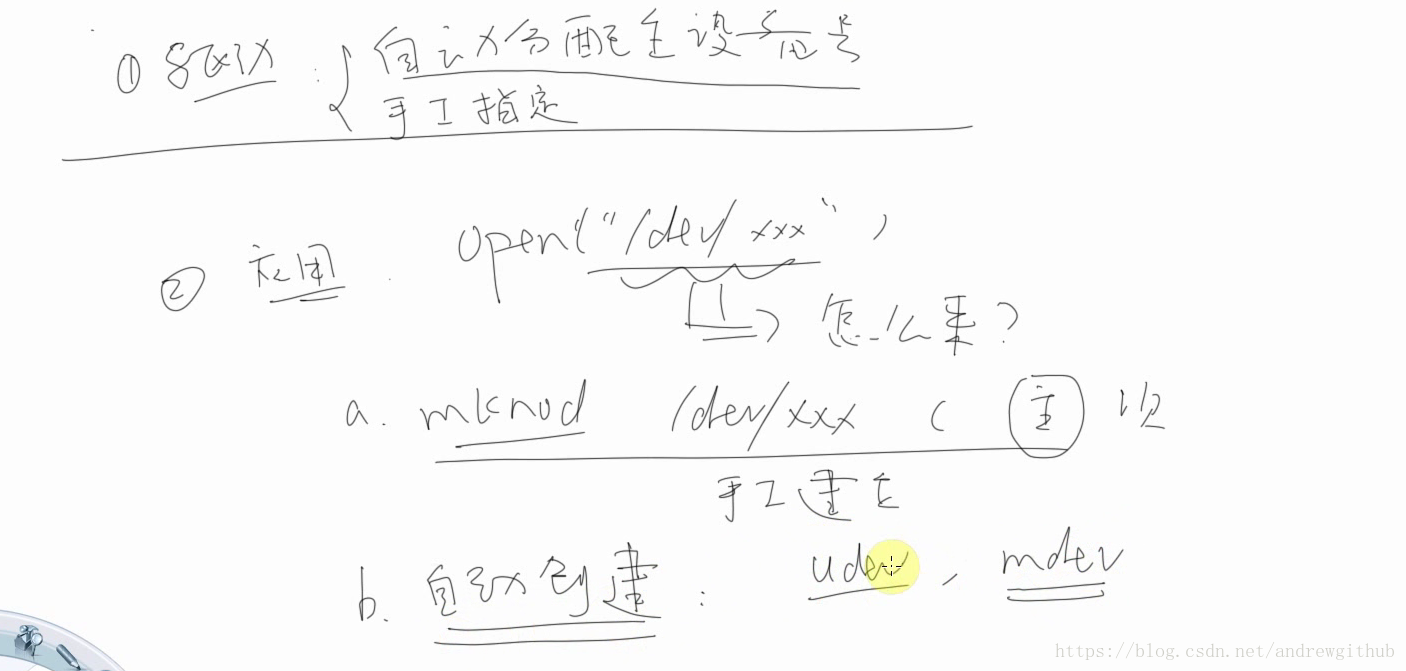 ① 驱动: 自动分配主设备号
手工指定
② 应用: open("/dev/xxx",
怎么来?
a. mknod /dev/xxx c 主 次
手工建立
b. 自动创建: udev, mdev
https://blog.csdn.net/andrewgithub